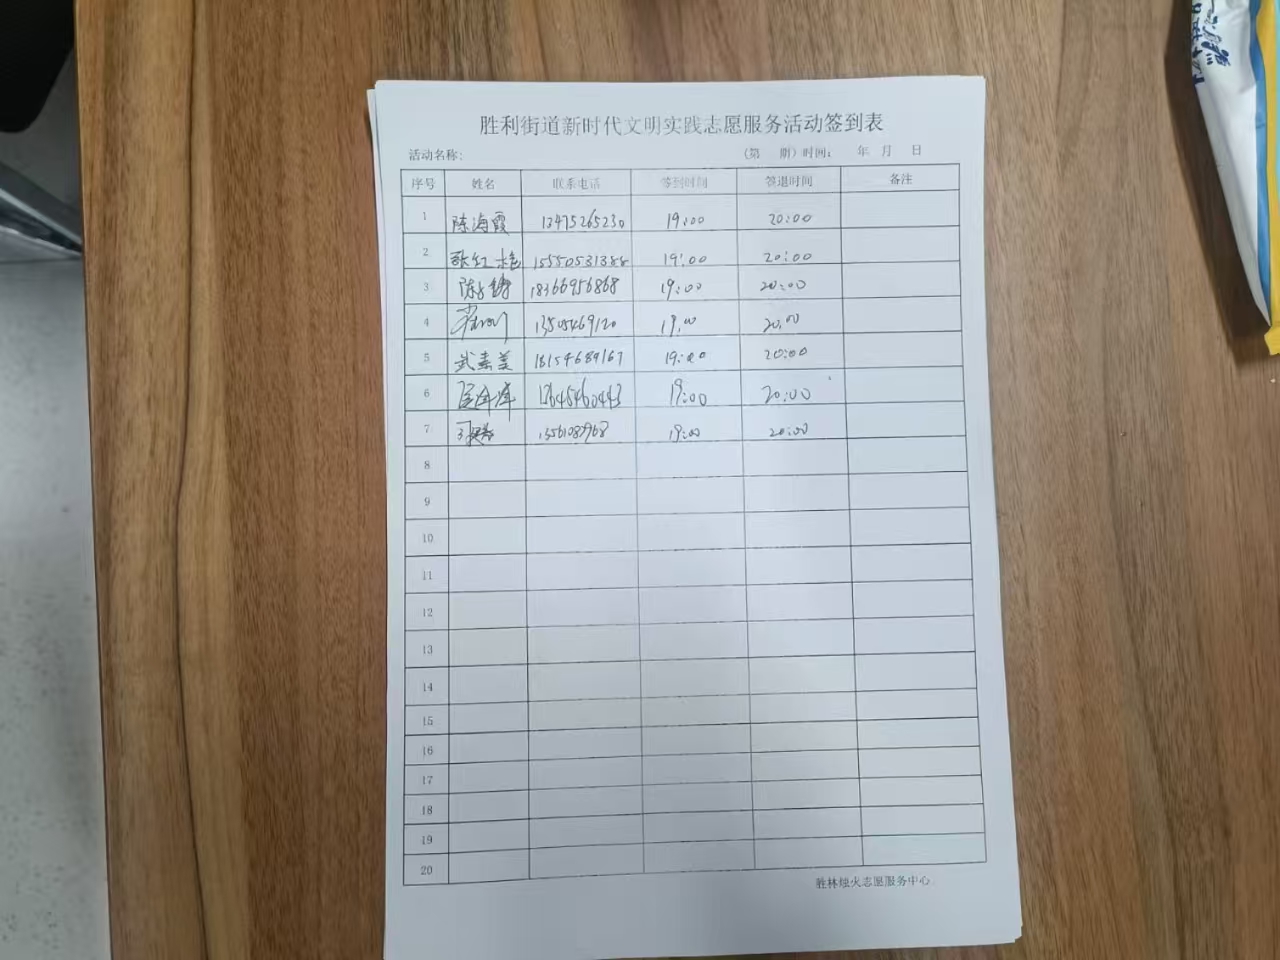 胜利街道新时代文明实践志愿服务活动签到表
活动名称: (第 期) 时间: 年 月 日
序号 姓名 联系电话 签到时间 签退时间 备注
1 陈海霞 13475265230 19:00 20:00
2 张红艳 15550531388 19:00 20:00
3 18366956868 19:00 20:00
4 13505469120 19:00 20:00
5 武素美 18154689167 19:00 20:00
6 17645460443 19:00 20:00
7 19:00 20:00
8
9
10
11
12
13
14
15
16
17
18
19
20
胜林烛火志愿服务中心